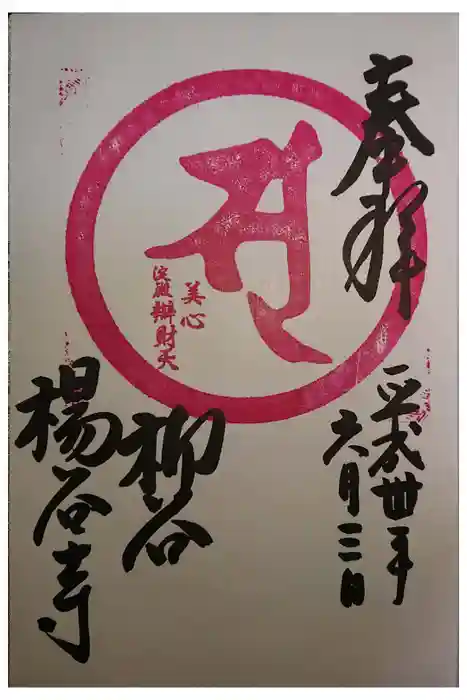 奉拝
平成卅年
六月三日
美心
淀殿辯財天
柳谷
楊谷寺